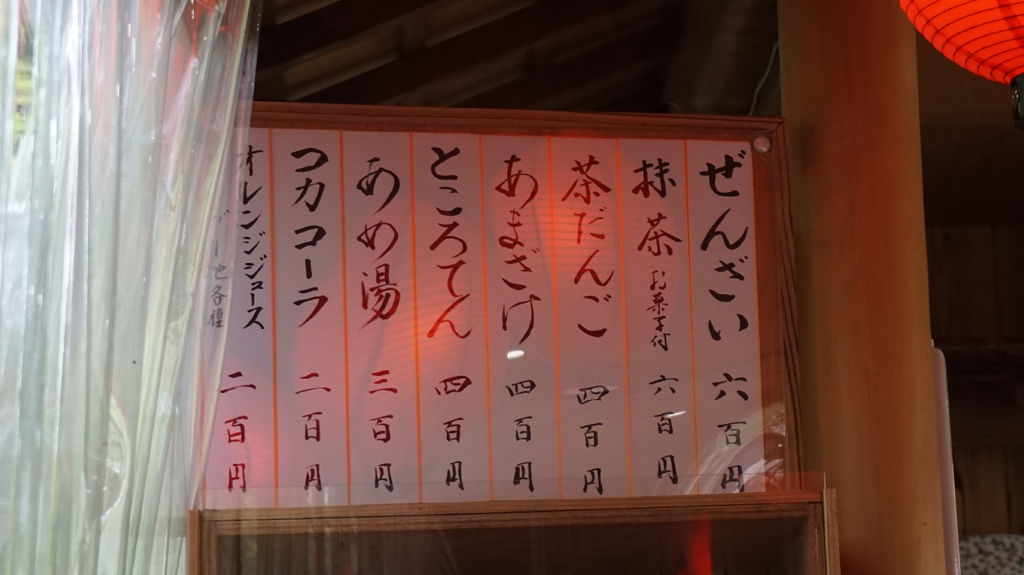 ぜんざい 六百円
抹茶 お菓子付 六百円
茶だんご 四百円
あまざけ 四百円
ところてん 四百円
あめ湯 三百円
コカコーラ 二百円
オレンジジュース 二百円
他各種